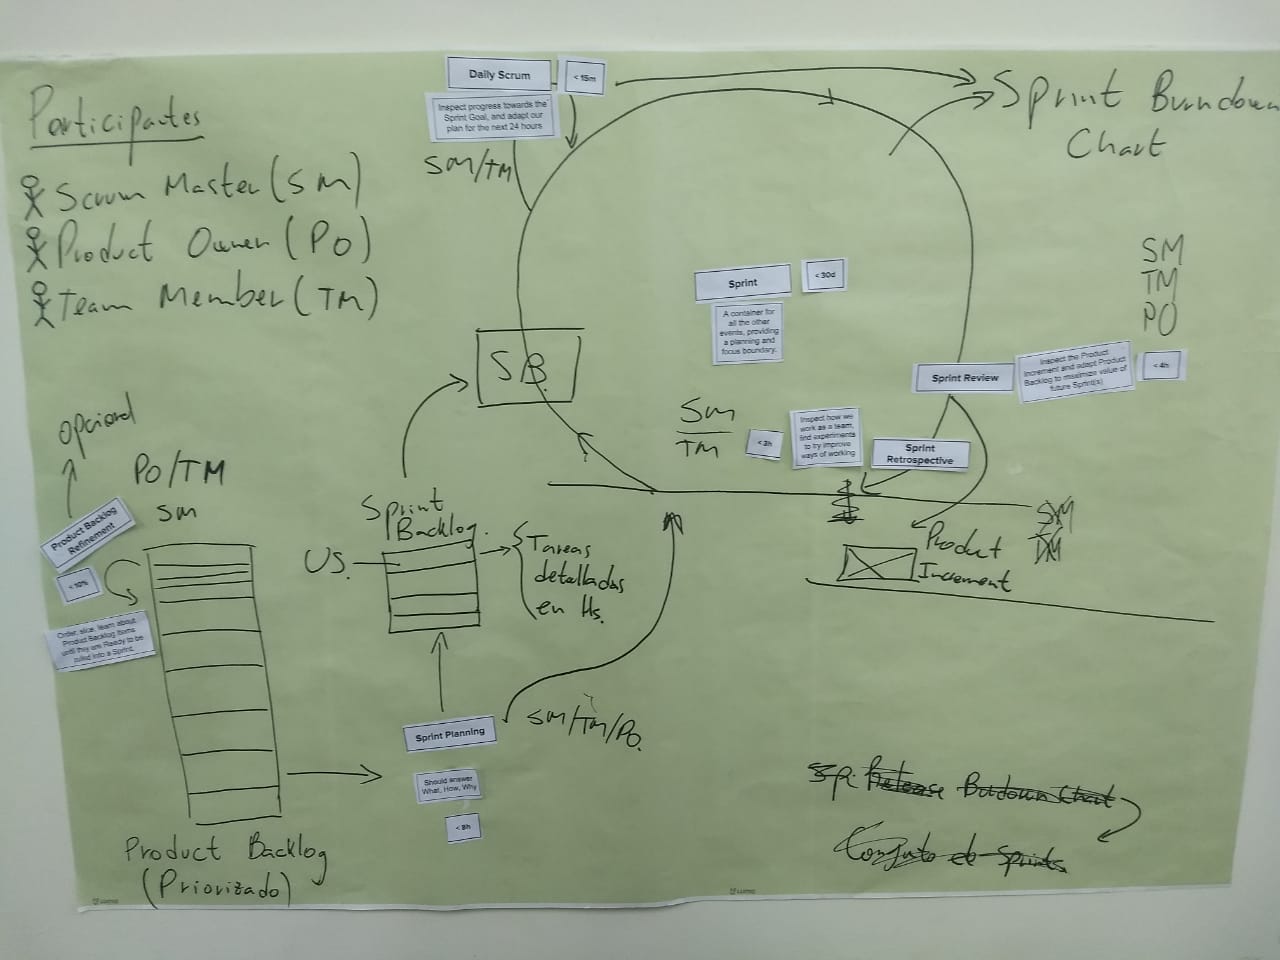 Participantes
Scrum Master (SM)
Product Owner (PO)
Team Member (TM)
Daily Scrum
< 15m
Inspect progress towards the
Sprint Goal, and adapt our
plan for the next 24 hours
SM/TM
Sprint Burndown
Chart
Sprint
< 30d
A container for
all the other
events, providing
a planning and
focus boundary.
SM
TM
PO
Sprint Review
Inspect the Product
Increment and adapt Product
Backlog to maximize value of
future Sprint(s)
< 4h
S.B.
SM
TM
< 3h
Inspect how we
work as a team,
find experiments
to try improve
ways of working
Sprint
Retrospective
Opcional
PO/TM
SM
Product Backlog
Refinement
< 10%
Order, slice, learn about
Product Backlog Items
until they are Ready to be
pulled into a Sprint.
Sprint
Backlog
US.
Tareas
detalladas
en Hs.
Product
Increment
SM
Sprint Planning
Should answer
What, How, Why
< 8h
SM/TM/PO.
Product Backlog
(Priorizado)
Release Burdown Chart
Conjunto de Sprints